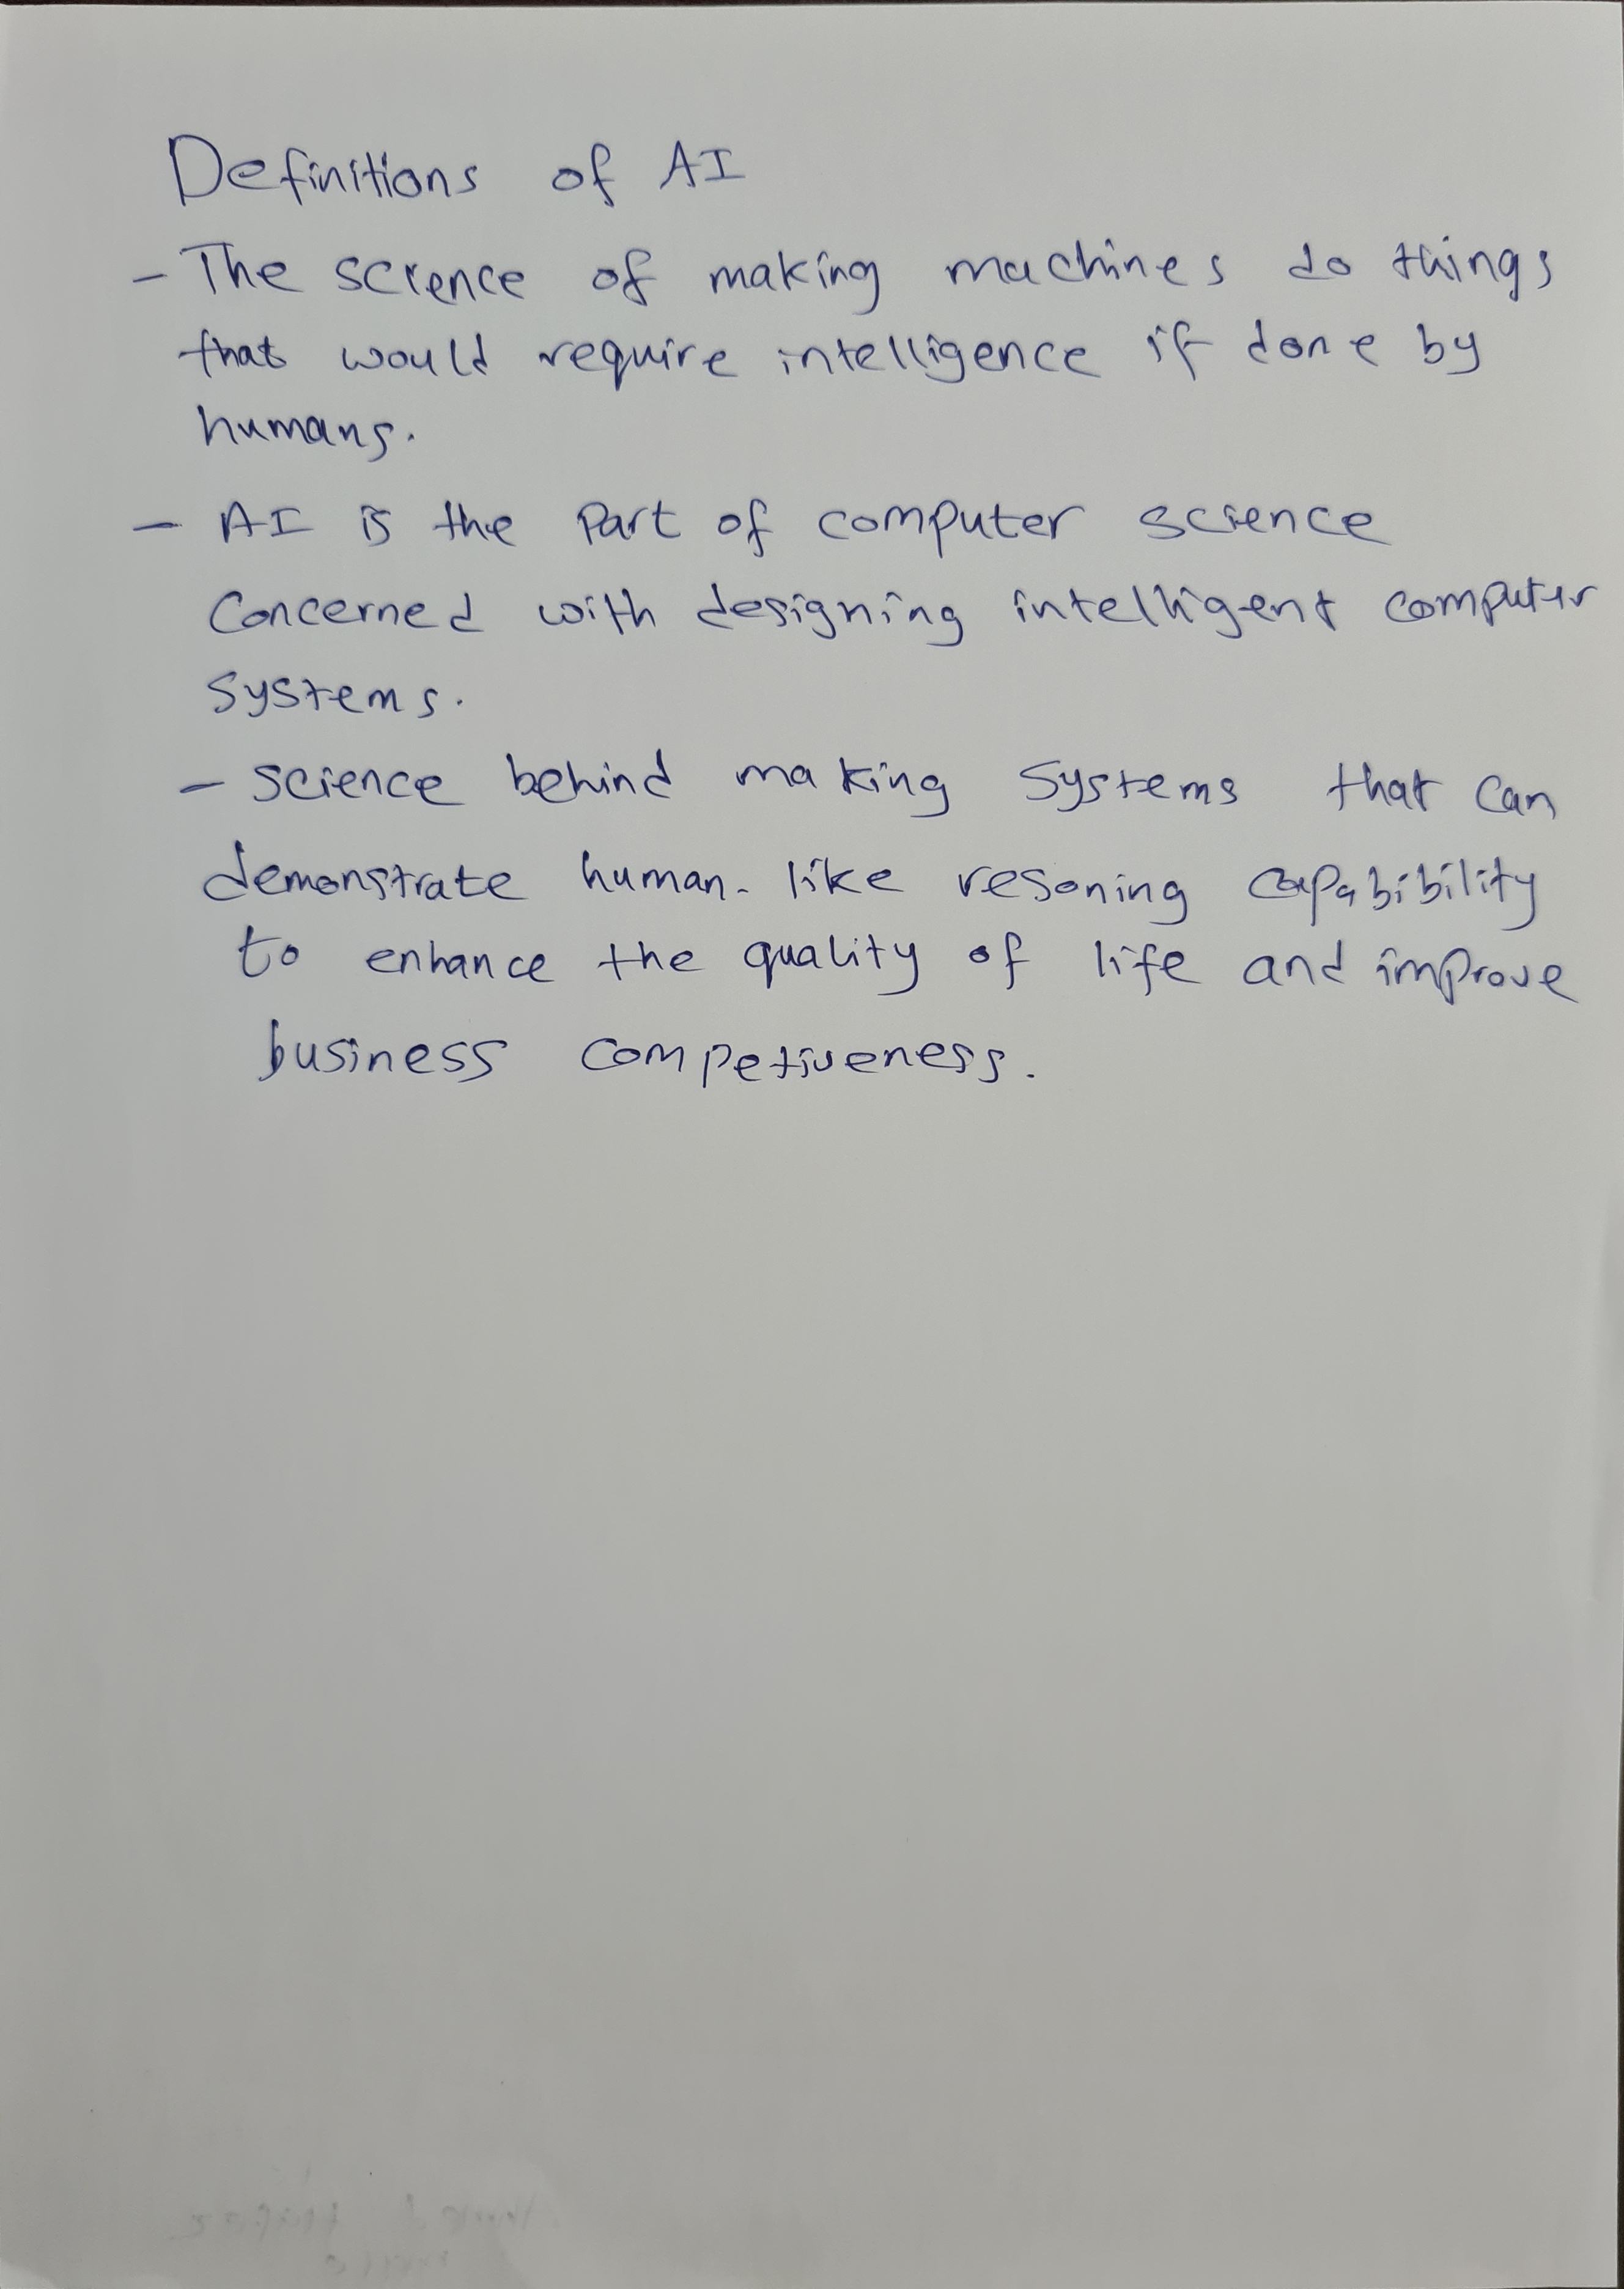 Definitions of AI
- The science of making machines do things
that would require intelligence if done by
humans.
- AI is the Part of computer science
Concerned with designing intelligent computer
systems.
- science behind making systems that can
demonstrate human-like resoning capabibility
to enhance the quality of life and improve
business competiveness.